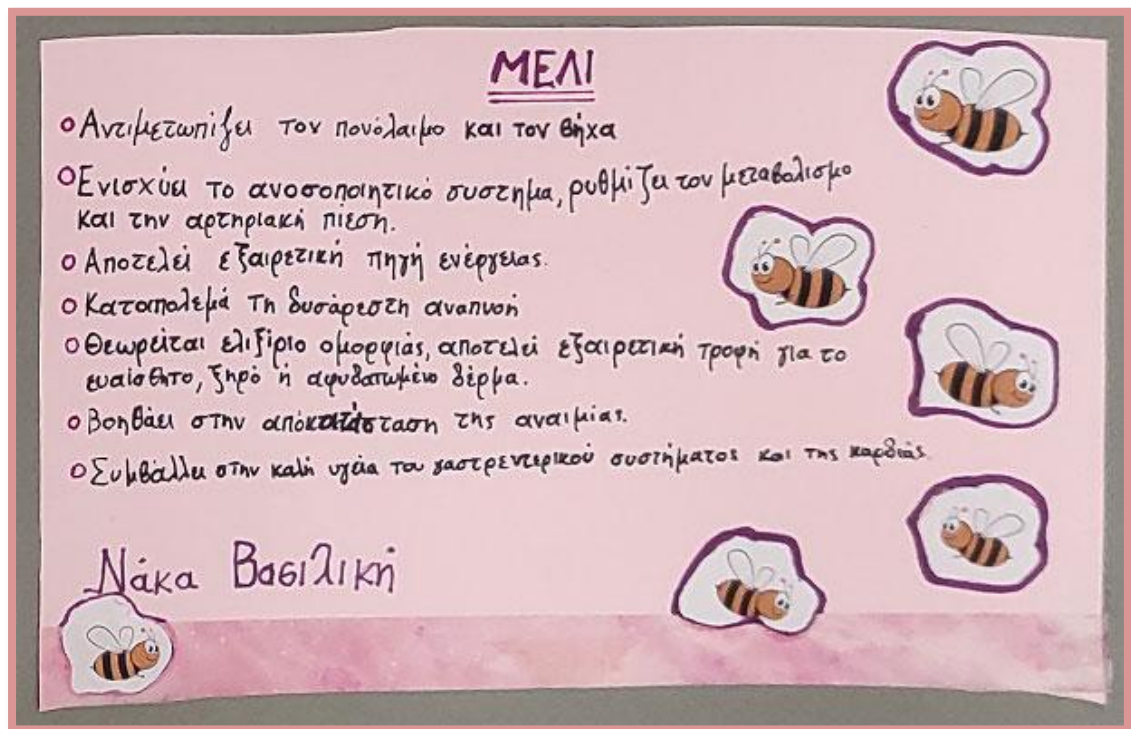 ΜΕΛΙ
Αντιμετωπίζει τον πονόλαιμο και τον βήχα
Ενισχύει το ανοσοποιητικό συστημα, ρυθμίζει τον μεταβολισμο
και την αρτηριακή πίεση.
Αποτελεί εξαιρετική πηγή ενέργειας.
Καταπολεμά τη δυσάρεστη αναπνοή
Θεωρείται ελιξίριο ομορφιάς, αποτελεί εξαιρετική τροφή για το
ευαίσθητο, ξηρό ή αφυδατωμένο δέρμα.
Βοηθάει στην αποκατάσταση της αναιμίας.
Συμβάλλει στην καλή υγεία του γαστρεντερικού συστήματος και της καρδιάς.
Νάκα Βασιλική